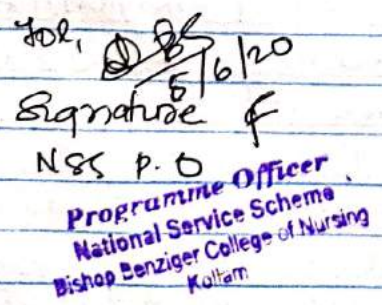 for,
5/6/20
Signature of
NSS P.O
Programme Officer
National Service Scheme
Bishop Benziger College of Nursing
Kollam